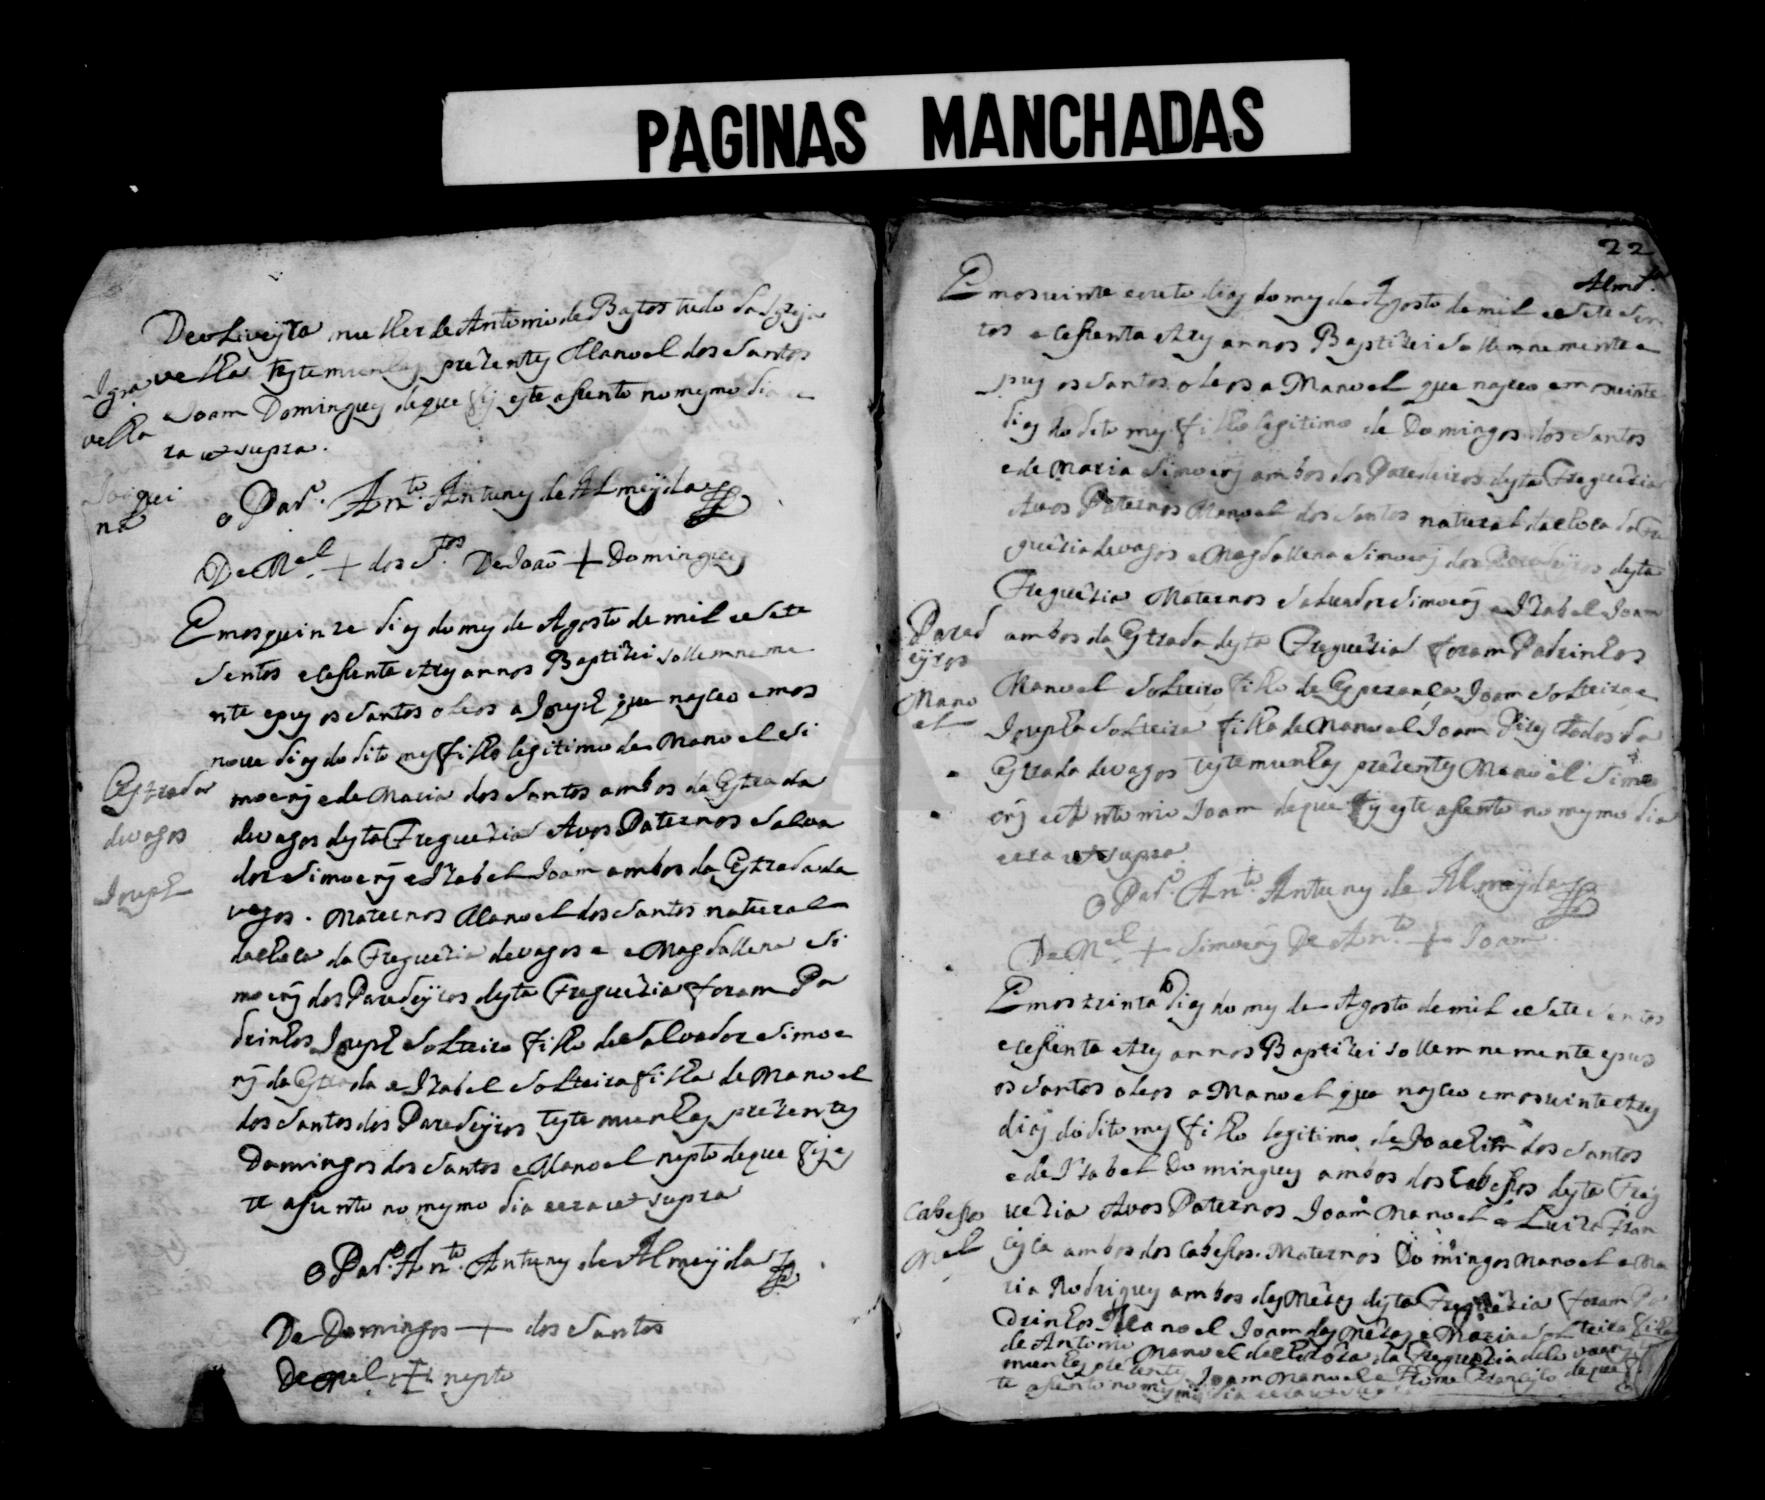 PAGINAS MANCHADAS
De oLiveyra mulher de Antonio de Bastos tudo da Igreja
velha testemunhas prezentes Manoel dos Santos
e Joam Domingues de que fis este asento no mesmo dia e
ra ut supra.
Igra
velha
Joaqui
na
o Pad.e An.to Antunes de ALmeyda
De M.el + dos S.tos De Joaõ + Domingues
Em os quinze dias do mes de Agosto de mil e Sete
Sentos e cesenta e tres annos Baptizei sollemneme
nte e pus os Santos oLeos a Joseph que nasceo em os
nove dias do dito mes filho legitimo de Manoel Si
moens e de Maria dos Santos ambos da Estrada
de vagos desta Freguezia Avos Paternos Salva
dor Simoens e Izabel Joam ambos da Estrada de
vagos. Maternos Manoel dos Santos natural
da da Freguezia de vagos e e Magdallena Si
moens dos Paredeyros desta Freguezia foram Pa
drinhos Joseph Solteiro filho de Salvador Simoe
ns da Estrada e Izabel Solteira filha de Manoel
dos Santos dos Paredeyros testemunhas prezentes
Domingos dos Santos e Manoel nepto de que fis es
te asento no mesmo dia e era ut supra
Estrada
de vagos
Joseph
o Pad.e An.to Antunes de Almeyda
De Domingos + dos Santos
De Mel + nepto
22
Alm.da
Em os vinte e outo dias do mes de Agosto de mil e Sete Sen
tos e cesenta e tres annos Baptizei Sollemnemente e
pus os Santos oleos a Manoel que nasceo em os vinte
dias do dito mes filho legitimo de Domingos dos Santos
e de Maria Simoens ambos dos Paredeiros desta Freguezia
Avos Paternos Manoel dos Santos natural da da Fre
guezia de vagos e Magdallena Simoens dos Paredeyros desta
Freguezia Maternos Salvador Simoens e Izabel Joam
ambos da Estrada desta Freguezia foram Padrinhos
Manoel Solteiro filho de Esperança Joam Solteira e
Josepha Solteira filha de Manoel Joam todos da
Estrada de vagos testemunhas prezentes Manoel Simo
ens e Antonio Joam de que fis este asento no mesmo dia
e era ut supra.
Pared
eyros
Mano
el
o Pad.e An.to Antunes de Almeyda
De M.el + Simoens De An.to + Joam
Em os trinta dias do mes de Agosto de mil e Sete Sentos
e cesenta e tres annos Baptizei sollemnemente e pus
os Santos oleos a Manoel que nasceo em os vinte e tres
dias do dito mes filho legitimo de Joachim dos Santos
e de Izabel Domingues ambos dos Cabesos desta Freg
uezia Avos Paternos Joam Manoel e Luiza Fran
cisca ambos dos Cabesos. Maternos Domingos Manoel e Ma
ria Rodrigues ambos das Mezas desta Freguezia foram Pa
drinhos Manoel Joam das Mezas e Maria Solteira filha
de Antonio Manoel da Freguezia de
munhas prezentes Joam Manoel e Thome Francisco de que fis
te asento no mesmo dia e era ut supra
Cabesos
Mel